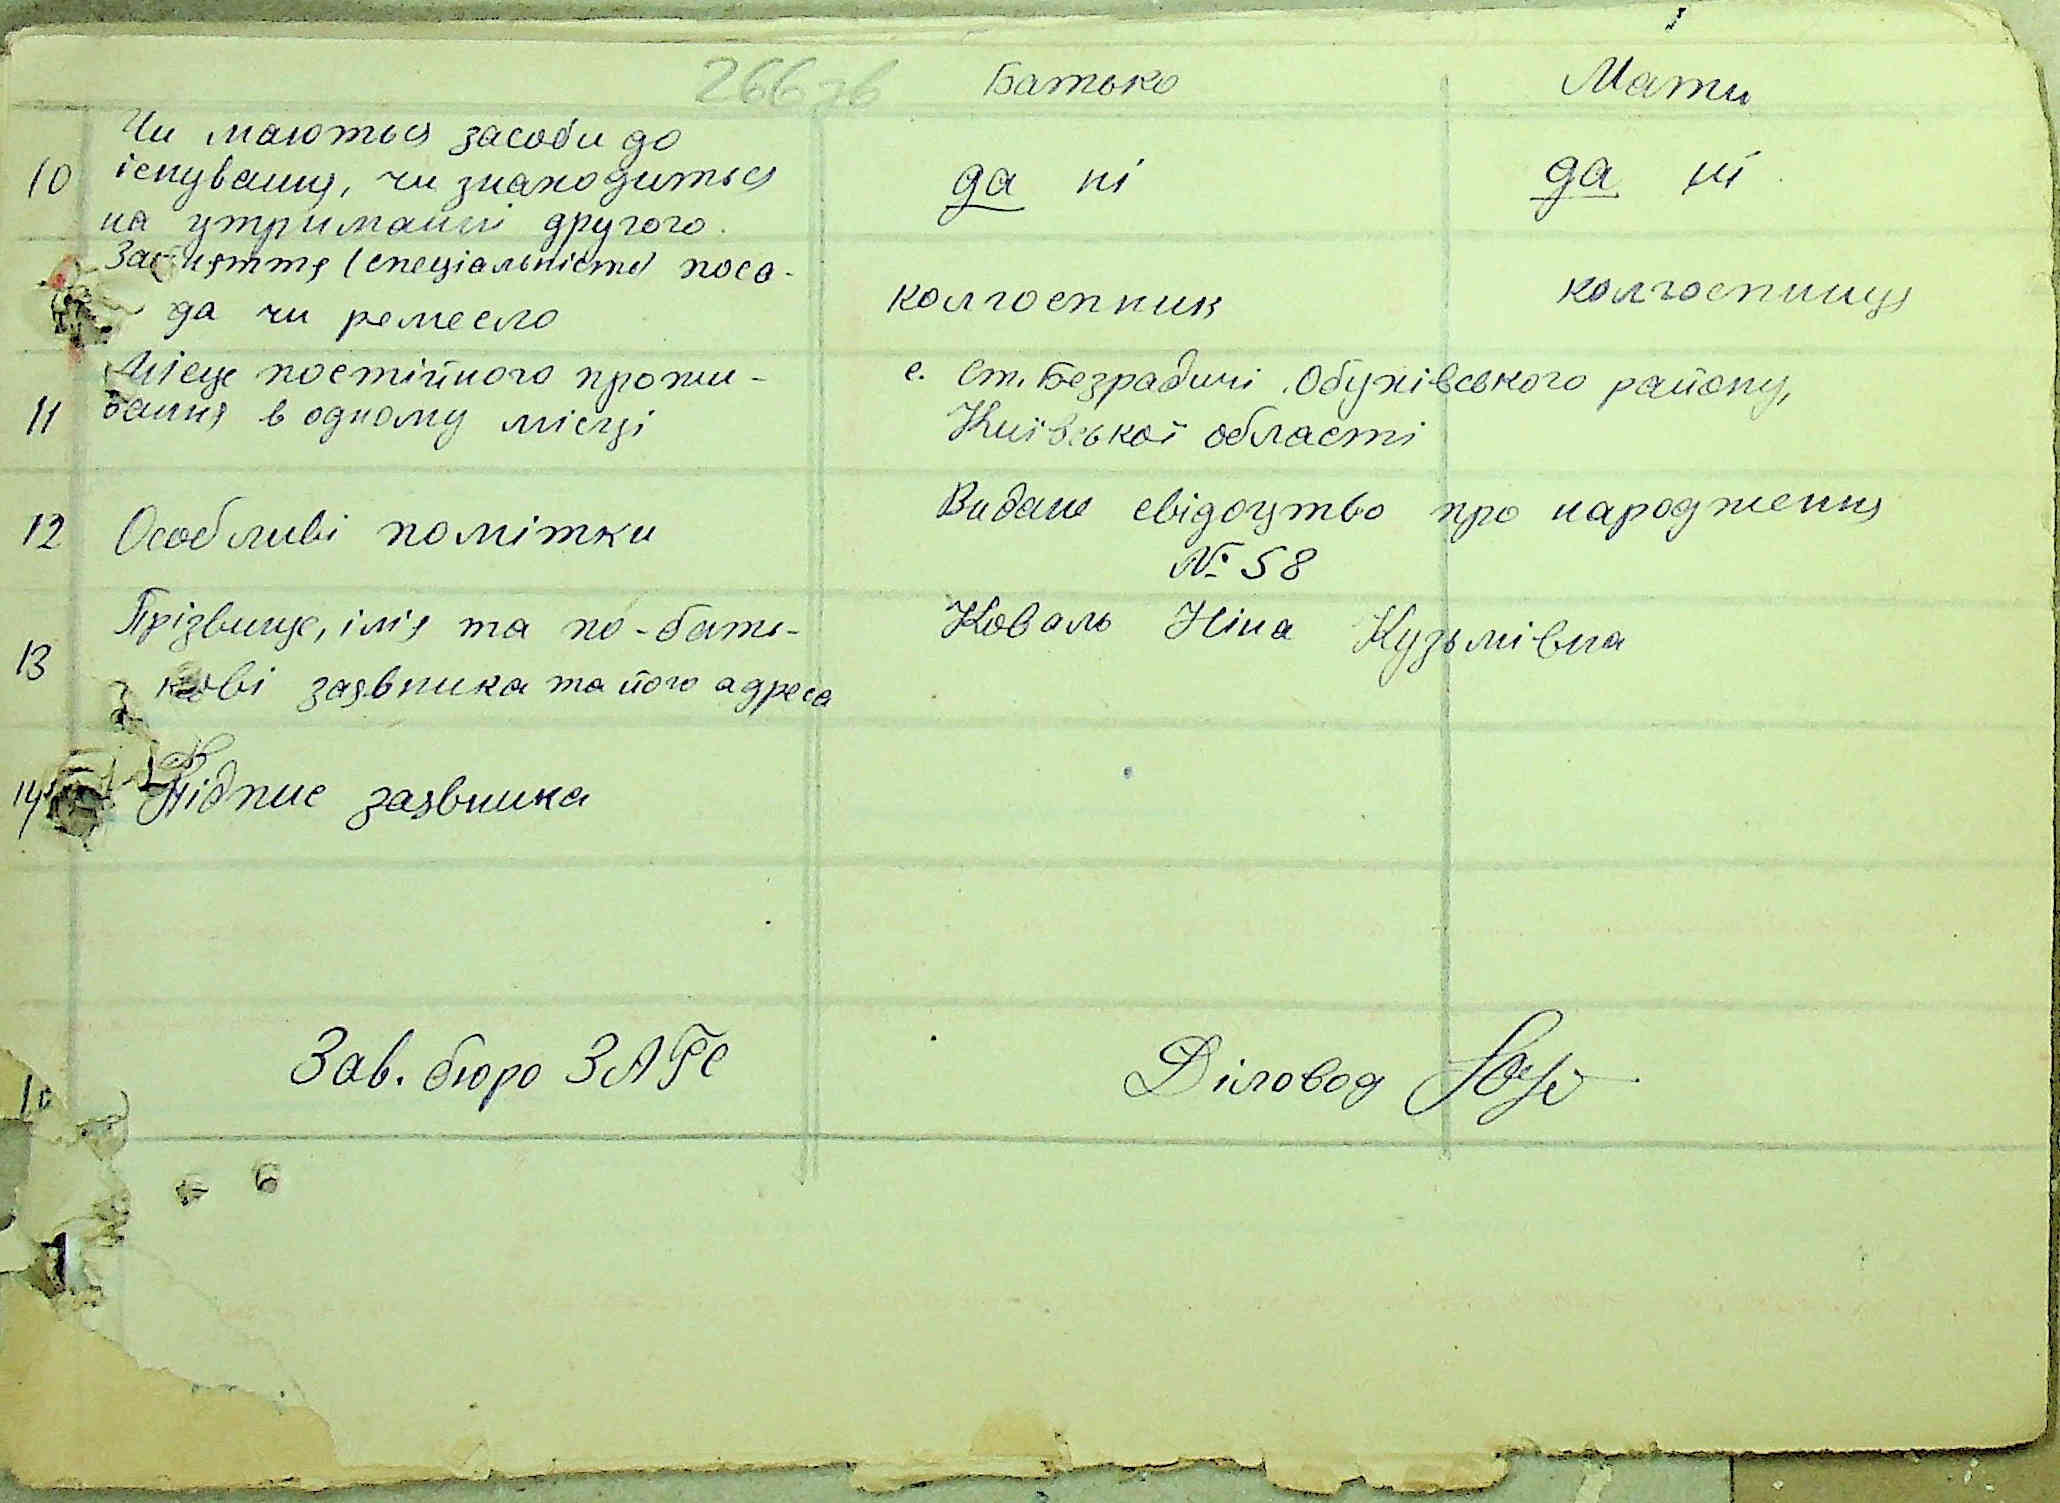 266 зв
Батько
Мати
Чи маються засоби до
10 існування, чи знаходиться
на утриманні другого.
да ні
да ні
Заняття (спеціальність) поса-
да чи ремесло
колгоспник
колгоспниця
Місце постійного прожи-
11 вання в одному місці
с. Ст. Безрадичі Обухівського району,
Київської області
12 Особливі помітки
Видане свідоцтво про народження
№ 58
Прізвище, імя та по-бать-
13 кові заявника та його адреса
Коваль Ніна Кузьмівна
14 Підпис заявника
Зав. бюро ЗАГС
Діловод